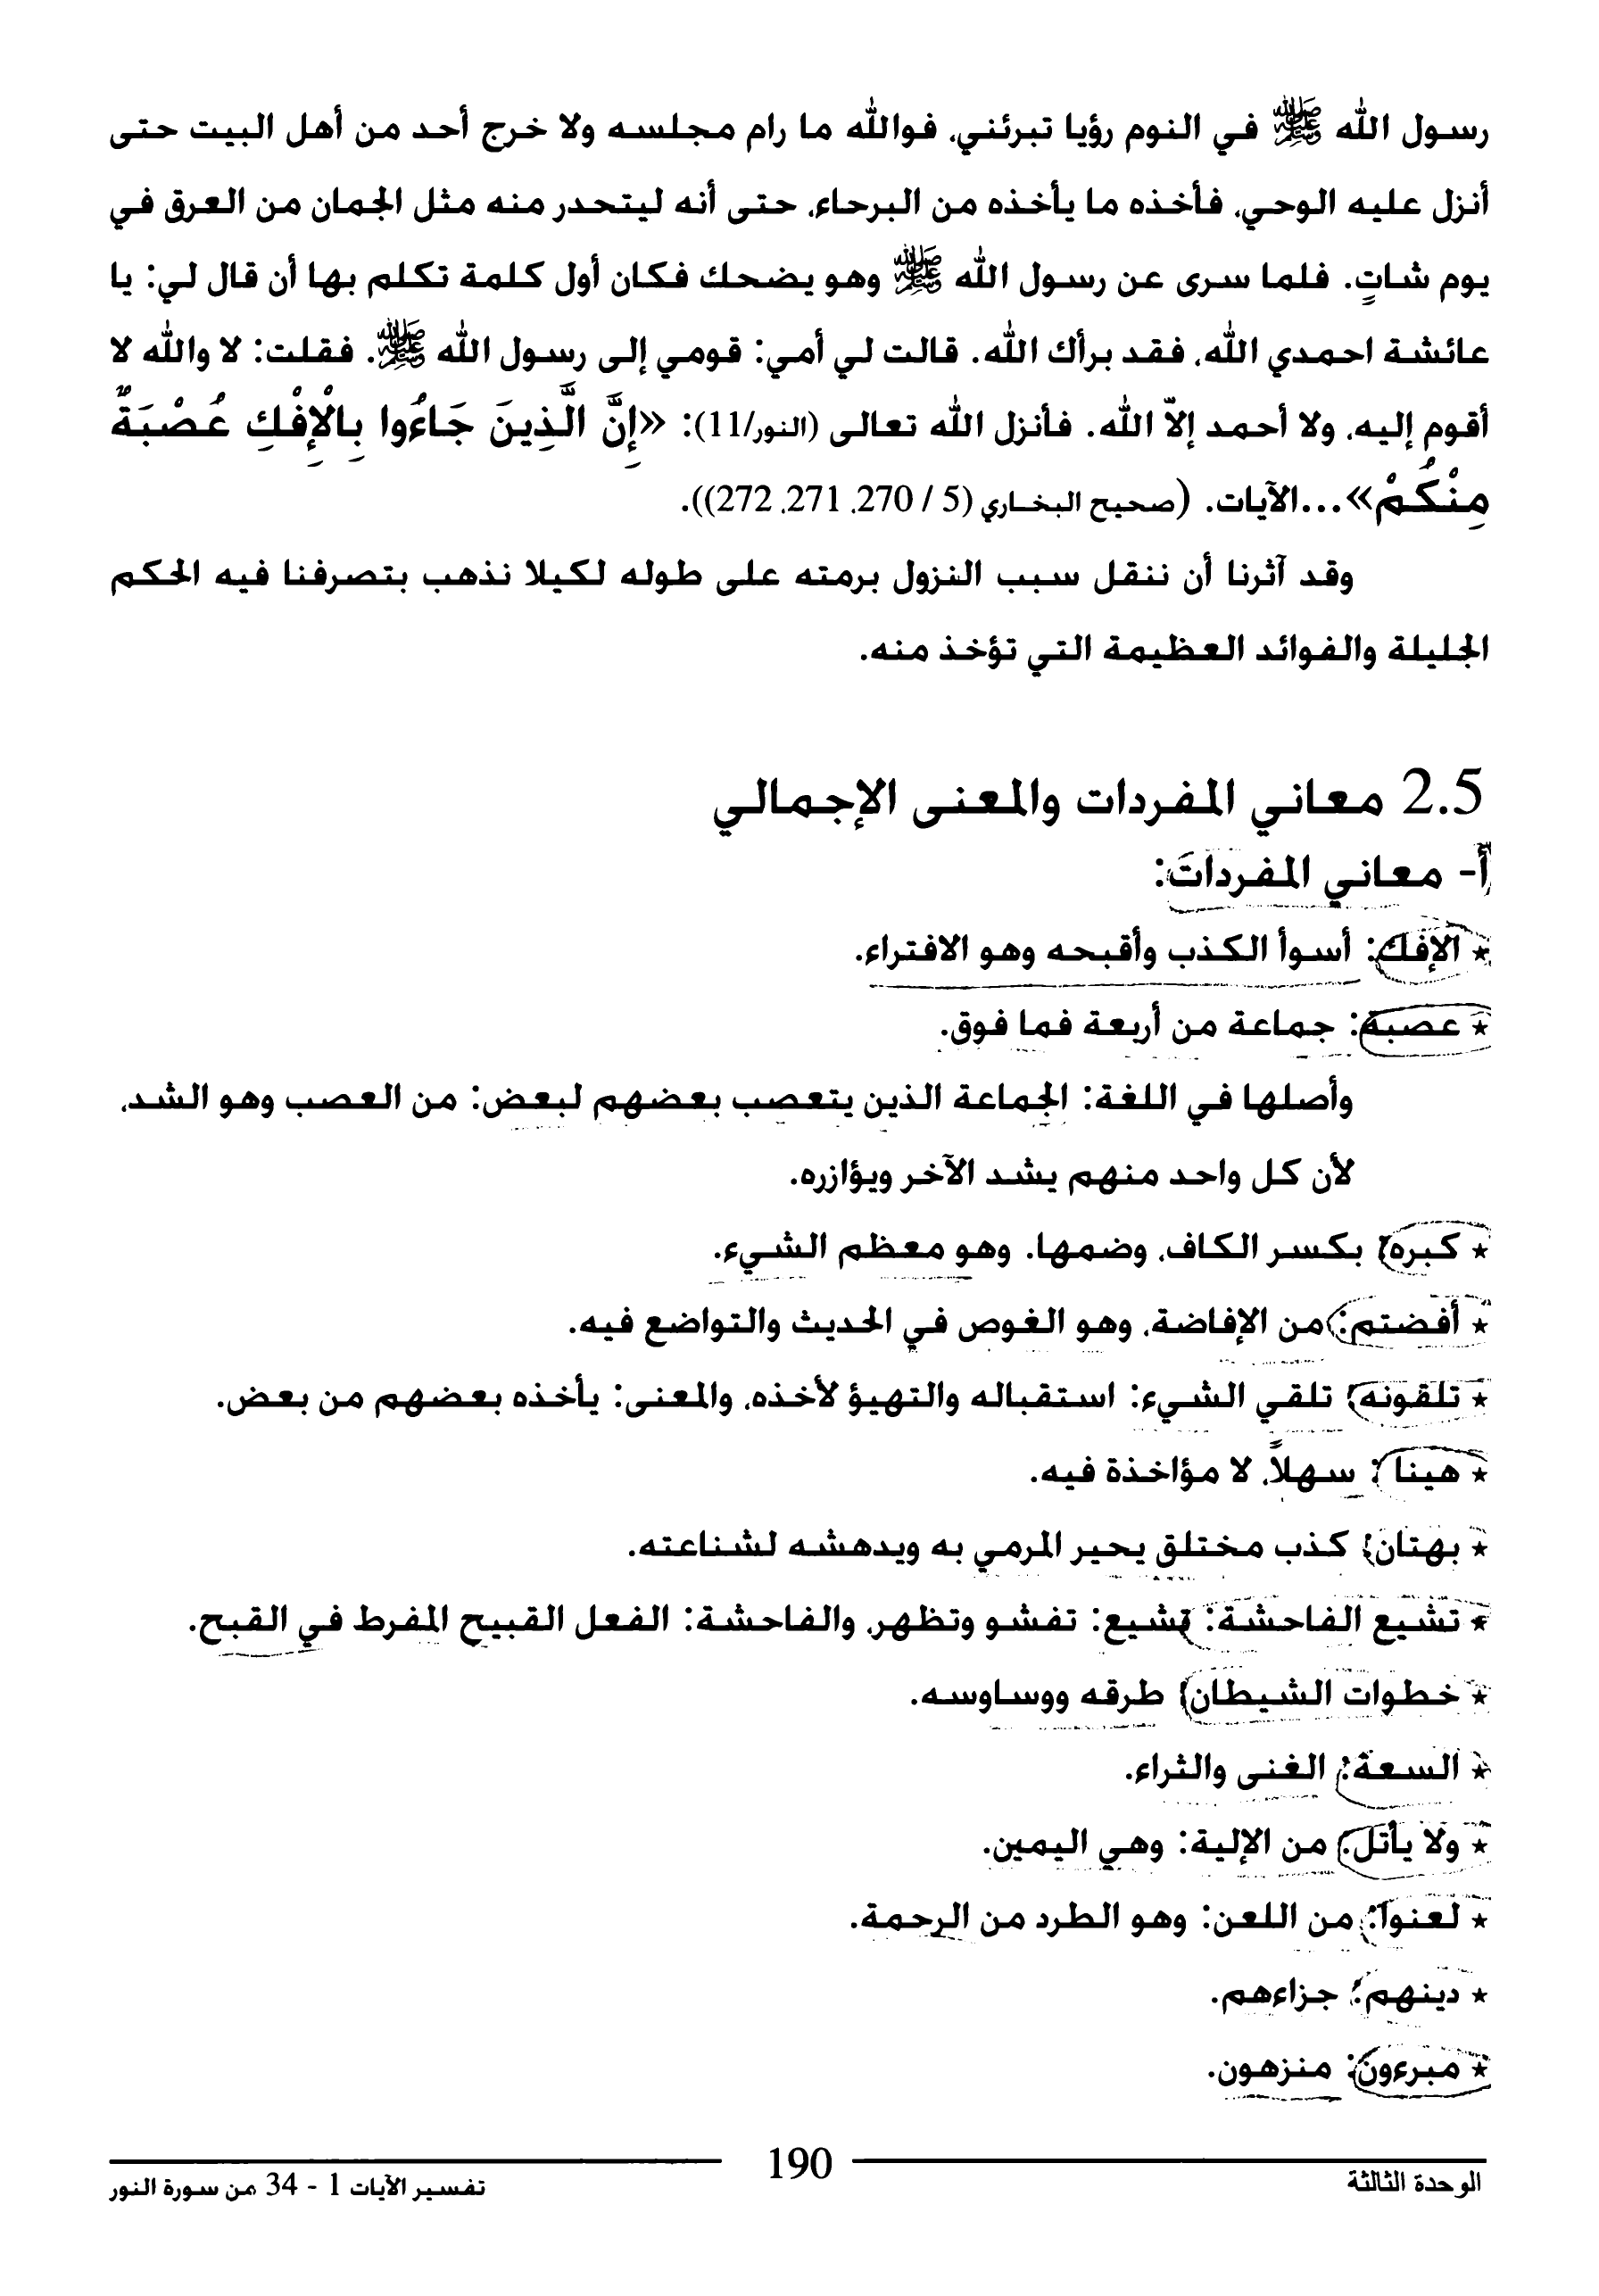 رسول الله ﷺ في النوم رؤيا تبرئني، فوالله ما رام مجلسه ولا خرج أحد من أهل البيت حتى
أنزل عليه الوحي، فأخذه ما يأخذه من البرحاء، حتى أنه ليتحدر منه مثل الجمان من العرق في
يوم شاتٍ. فلما سرى عن رسول الله ﷺ وهو يضحك فكان أول كلمة تكلم بها أن قال لي: يا
عائشة احمدي الله، فقد برأك الله. قالت لي أمي: قومي إلى رسول الله ﷺ. فقلت: لا والله لا
أقوم إليه، ولا أحمد إلاّ الله. فأنزل الله تعالى (النور/11): «إِنَّ الَّذِينَ جَاءُوا بِالْإِفْكِ عُصْبَةٌ
مِنْكُمْ»...الآيات. (صحيح البخاري (5 / 270، 271، 272)).
وقد آثرنا أن ننقل سبب النزول برمته على طوله لكيلا نذهب بتصرفنا فيه الحكم
الجليلة والفوائد العظيمة التي تؤخذ منه.
2.5 معاني المفردات والمعنى الإجمالي
أ- معاني المفردات:
★ الإفك: أسوأ الكذب وأقبحه وهو الافتراء.
★ عصبة: جماعة من أربعة فما فوق.
وأصلها في اللغة: الجماعة الذين يتعصب بعضهم لبعض: من العصب وهو الشد،
لأن كل واحد منهم يشد الآخر ويؤازره.
★ كبره: بكسر الكاف، وضمها. وهو معظم الشيء.
★ أفضتم: من الإفاضة، وهو الغوص في الحديث والتواضع فيه.
★ تلقونه: تلقي الشيء: استقباله والتهيؤ لأخذه، والمعنى: يأخذه بعضهم من بعض.
★ هينا: سهلاً، لا مؤاخذة فيه.
★ بهتان: كذب مختلق يحير المرمي به ويدهشه لشناعته.
★ تشيع الفاحشة: تشيع: تفشو وتظهر، والفاحشة: الفعل القبيح المفرط في القبح.
★ خطوات الشيطان: طرقه ووساوسه.
★ السعة: الغنى والثراء.
★ ولا يأتل: من الإلية: وهي اليمين.
★ لعنوا: من اللعن: وهو الطرد من الرحمة.
★ دينهم: جزاءهم.
★ مبرءون: منزهون.
الوحدة الثالثة 190 تفسير الآيات 1 - 34 من سورة النور